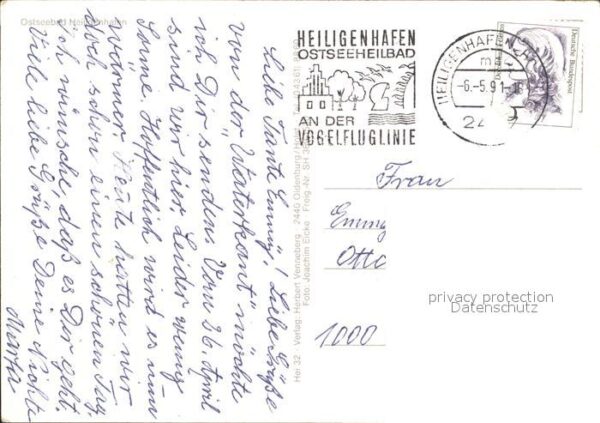 Ostseebad Heiligenhafen
Liebe Tante Emmy! Liebe Grüße
von der "Waterkant" möchte
ich Dir senden. Vom 26. April
sind wir hier. Leider wenig
Sonne. Hoffentlich wird es nun
wärmer. Heute hatten wir
doch schon einen schönen Tag.
Ich wünsche, daß es Dir geht.
Viele liebe Grüße Deine Nichte
Marta
Hei 32 Verlag: Herbert Venneberg · 2440 Oldenburg
Foto: Joachim Eicke · Freig.-Nr. SH
HEILIGENHAFEN
OSTSEEHEILBAD
AN DER
VOGELFLUGLINIE
HEILIGENHAFEN
-6.-5.91-18
24
Deutsche Bundespost
Frau
Emmy
Otto
1000
privacy protection
Datenschutz